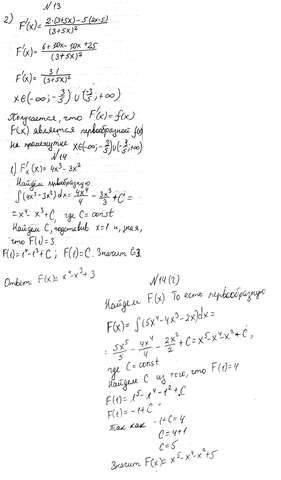 №13
2) F'(x) = 2·(3+5x) - 5(2x-5) / (3+5x)²
F'(x) = 6+10x-10x+25 / (3+5x)²
F'(x) = 31 / (3+5x)²
x∈(-∞; -3/5) ∪ (-3/5; +∞)
Получается, что F'(x) = f(x)
F(x) является первообразной f(x)
на промежутке x∈(-∞; -3/5) ∪ (-3/5; +∞)
№14
1) F'(x) = 4x³ - 3x²
Найдем первообразную
∫(4x³ - 3x²)dx = 4x⁴/4 - 3x³/3 + C =
= x⁴ - x³ + C, где C = const
Найдем C, подставив x=1 и, зная,
что F(1) = 3
F(1) = 1⁴ - 1³ + C; F(1) = C. Значит C=3
Ответ F(x) = x⁴ - x³ + 3
№14(2)
Найдем F(x) То есть первообразную
F(x) = ∫(5x⁴ - 4x³ - 2x)dx =
= 5x⁵/5 - 4x⁴/4 - 2x²/2 + C = x⁵ - x⁴ - x² + C,
где C = const
Найдем C из того, что F(1) = 4
F(1) = 1⁵ - 1⁴ - 1² + C
F(1) = -1 + C
Так как -1 + C = 4
C = 4+1
C = 5
Значит F(x) = x⁵ - x⁴ - x² + 5